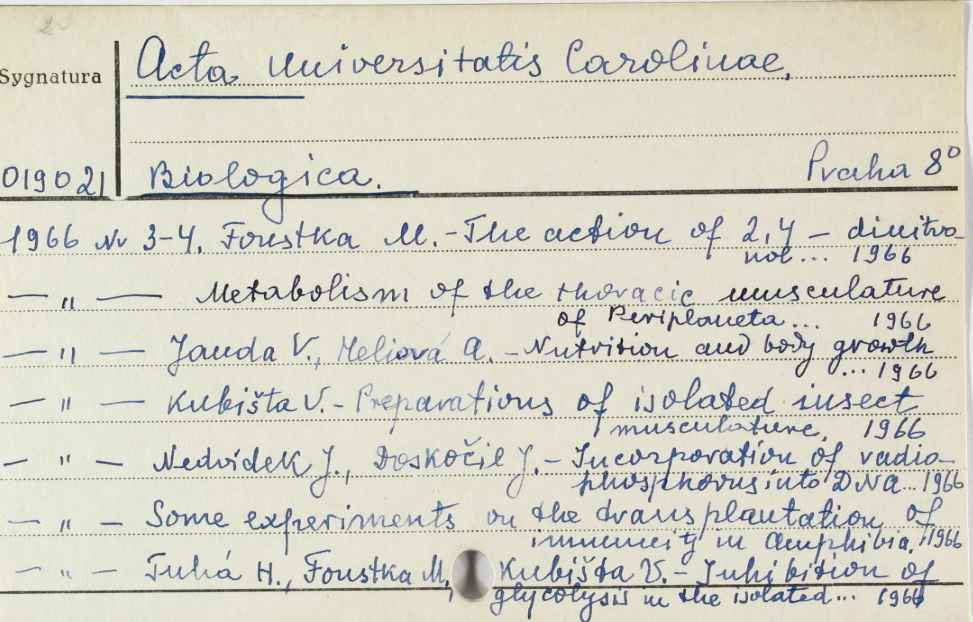 Acta Universitatis Carolinae,
Sygnatura
019021 Biologica. Praha 8°
1966 Nr 3-4. Foustka M. - The action of 2,4 - dinitro-
nol... 1966
— „ — Metabolism of the thoracic musculature
of Periplaneta... 1966
— „ — Janda V., Meliová A. - Nutrition and body growth
... 1966
— „ — Kubišta V. - Preparations of isolated insect
musculature, 1966
— „ — Nedvídek J., Doskočil J. - Incorporation of radio-
phosphorus into DNA... 1966
— „ — Some experiments on the transplantation of
immunity in Amphibia, 1966
— „ — Tuhá H., Foustka M., Kubišta V. - Inhibition of
glycolysis in the isolated... 1966